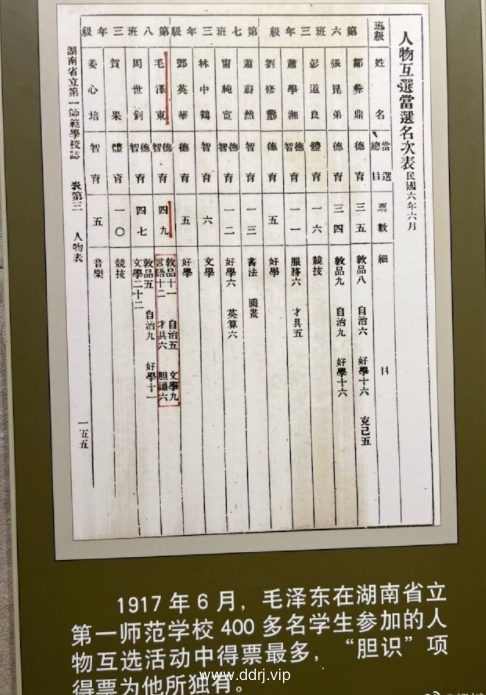 人物互選當選名次表 民國六年六月
班級 姓名 當選總目 票數 細目
第六班
鄒彝鼎 德育 三五 敦品八 自治六 好學十六 克己五
張昆弟 德育 三四 敦品九 自治九 好學十六
彭道良 體育 一六 競技
蕭學湘 德智育 一一 服務六 才具五
劉修 德育 五 好學
第七班三年級
蕭蔚然 智育 一三 書法 圖畫
甯純宦 德智育 一二 好學六 英算六
林中鶴 智育 六 文學
鄧英華 德育 五 好學
第八班三年級
毛澤東 德智育 四九 敦品十一 自治五 文學九 言語十二 才具六 胆識六
周世釗 德智育 四七 敦品五 自治九 好學十一 文學二十二
賀果 體育 一〇 競技
姜心培 智育 五 音樂
湖南省立第一師範學校誌 表第三 人物表 一五五
1917年6月，毛泽东在湖南省立
第一师范学校400多名学生参加的人
物互选活动中得票最多，“胆识”项
得票为他所独有。
www.ddrj.vip